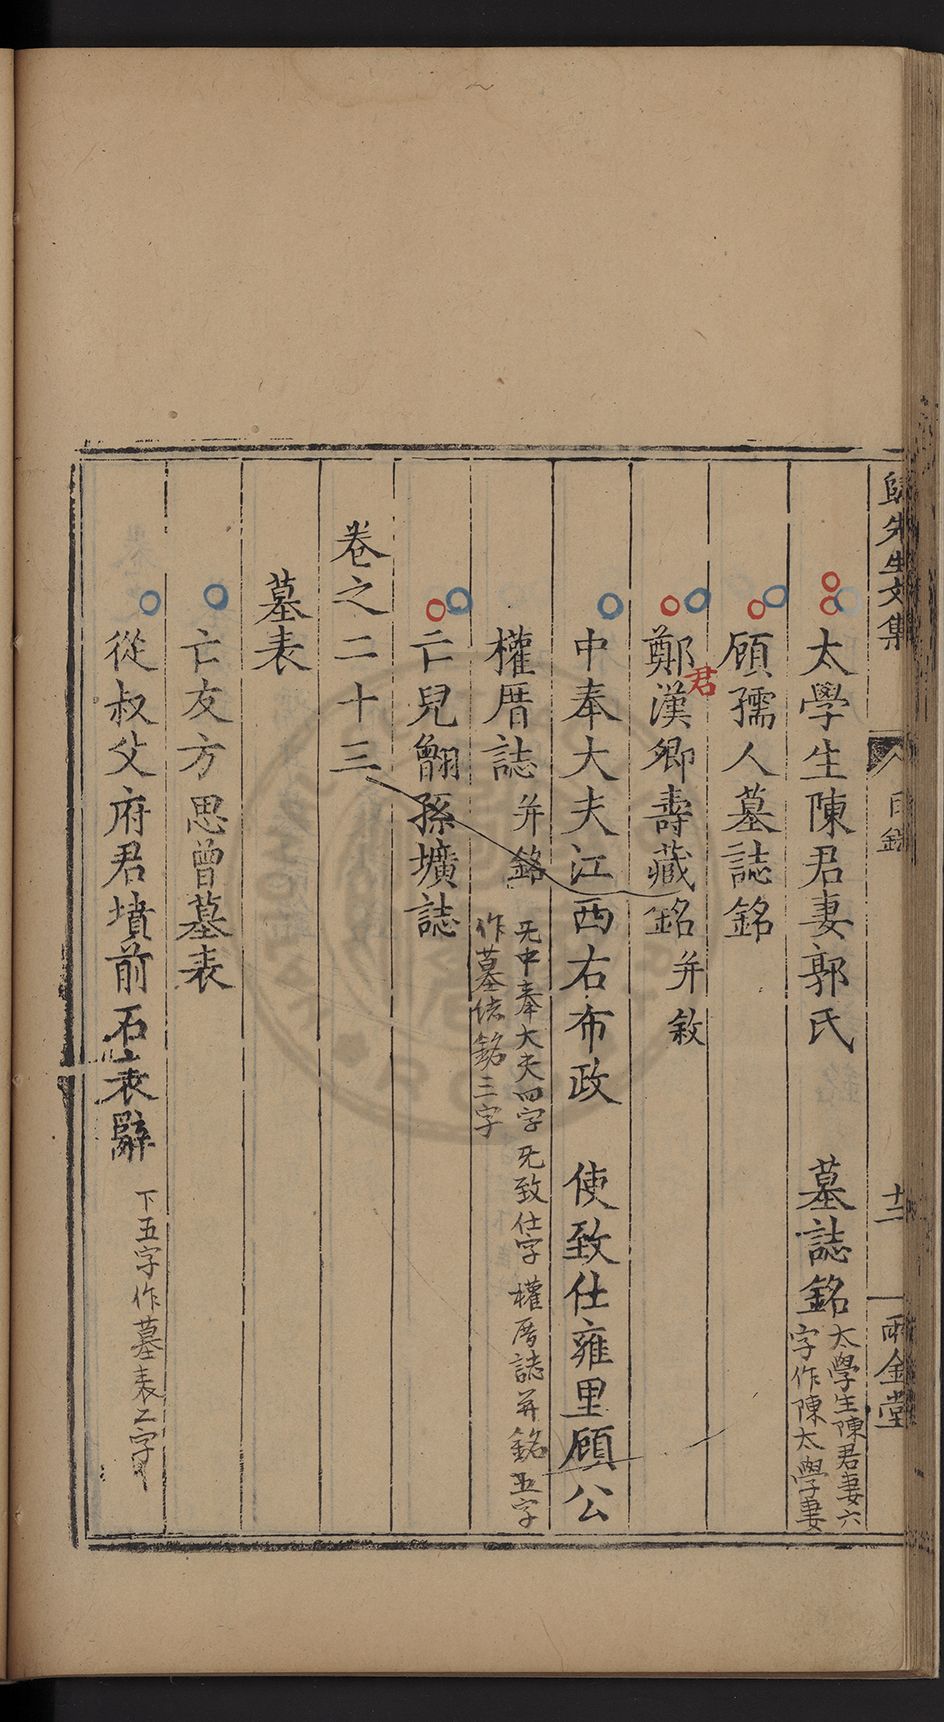 歸先生文集
目錄
十二
兩金堂
太學生陳君妻郭氏 墓誌銘
太學生陳君妻六
字作陳太學妻
顧孺人墓誌銘
鄭漢卿壽藏銘 并敘
君
中奉大夫江西右布政 使致仕雍里顧公
權厝誌 并銘
旡中奉大夫四字 旡致仕字 權厝誌并銘五字
作墓誌銘三字
亡兒䎖孫壙誌
卷之二十三
墓表
亡友方思曾墓表
從叔父府君墳前石表辭
下五字作墓表二字